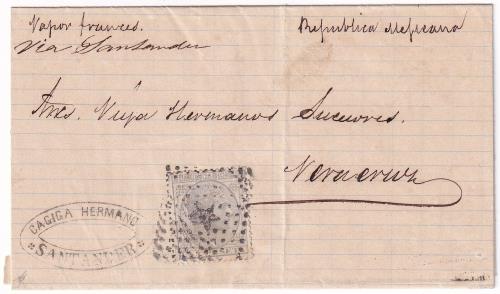 Vapor frances.
Via Santander
Republica Mejicana
Sres. Viya Hermanos Sucesores.
Veracruz
CAGIGA HERMANO
SANTANDER